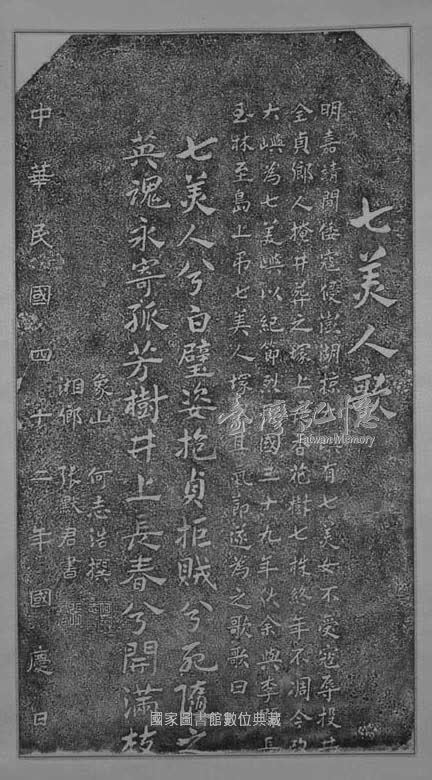 七美人歌
明嘉靖間倭寇侵澎湖掠 有七美女不受寇辱投井
全貞鄉人掩井葬之塚上 香花樹七株終年不凋今改
大嶼為七美嶼以紀節烈 國三十九年秋余與李縣長
玉林至島上弔七美人塚 且 氣節遂為之歌歌曰
七美人兮白璧姿抱貞拒賊兮死隨之
英魂永寄孤芳樹井上長春兮開滿枝
象山 何志浩撰
湘鄉 張默君書
中華民國四十二年國慶日
臺灣記憶
Taiwan Memory
國家圖書館數位典藏